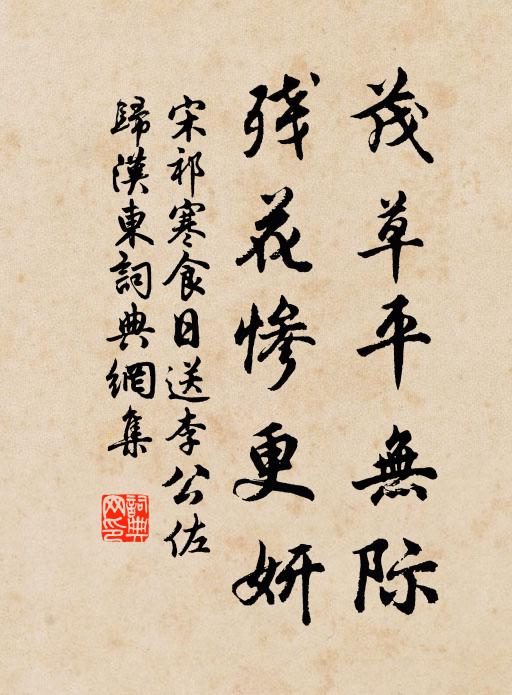 茂草平無际
残花惨更妍
宋祁寒食日送李公佐
歸漢東詞典網集
詞典
网印